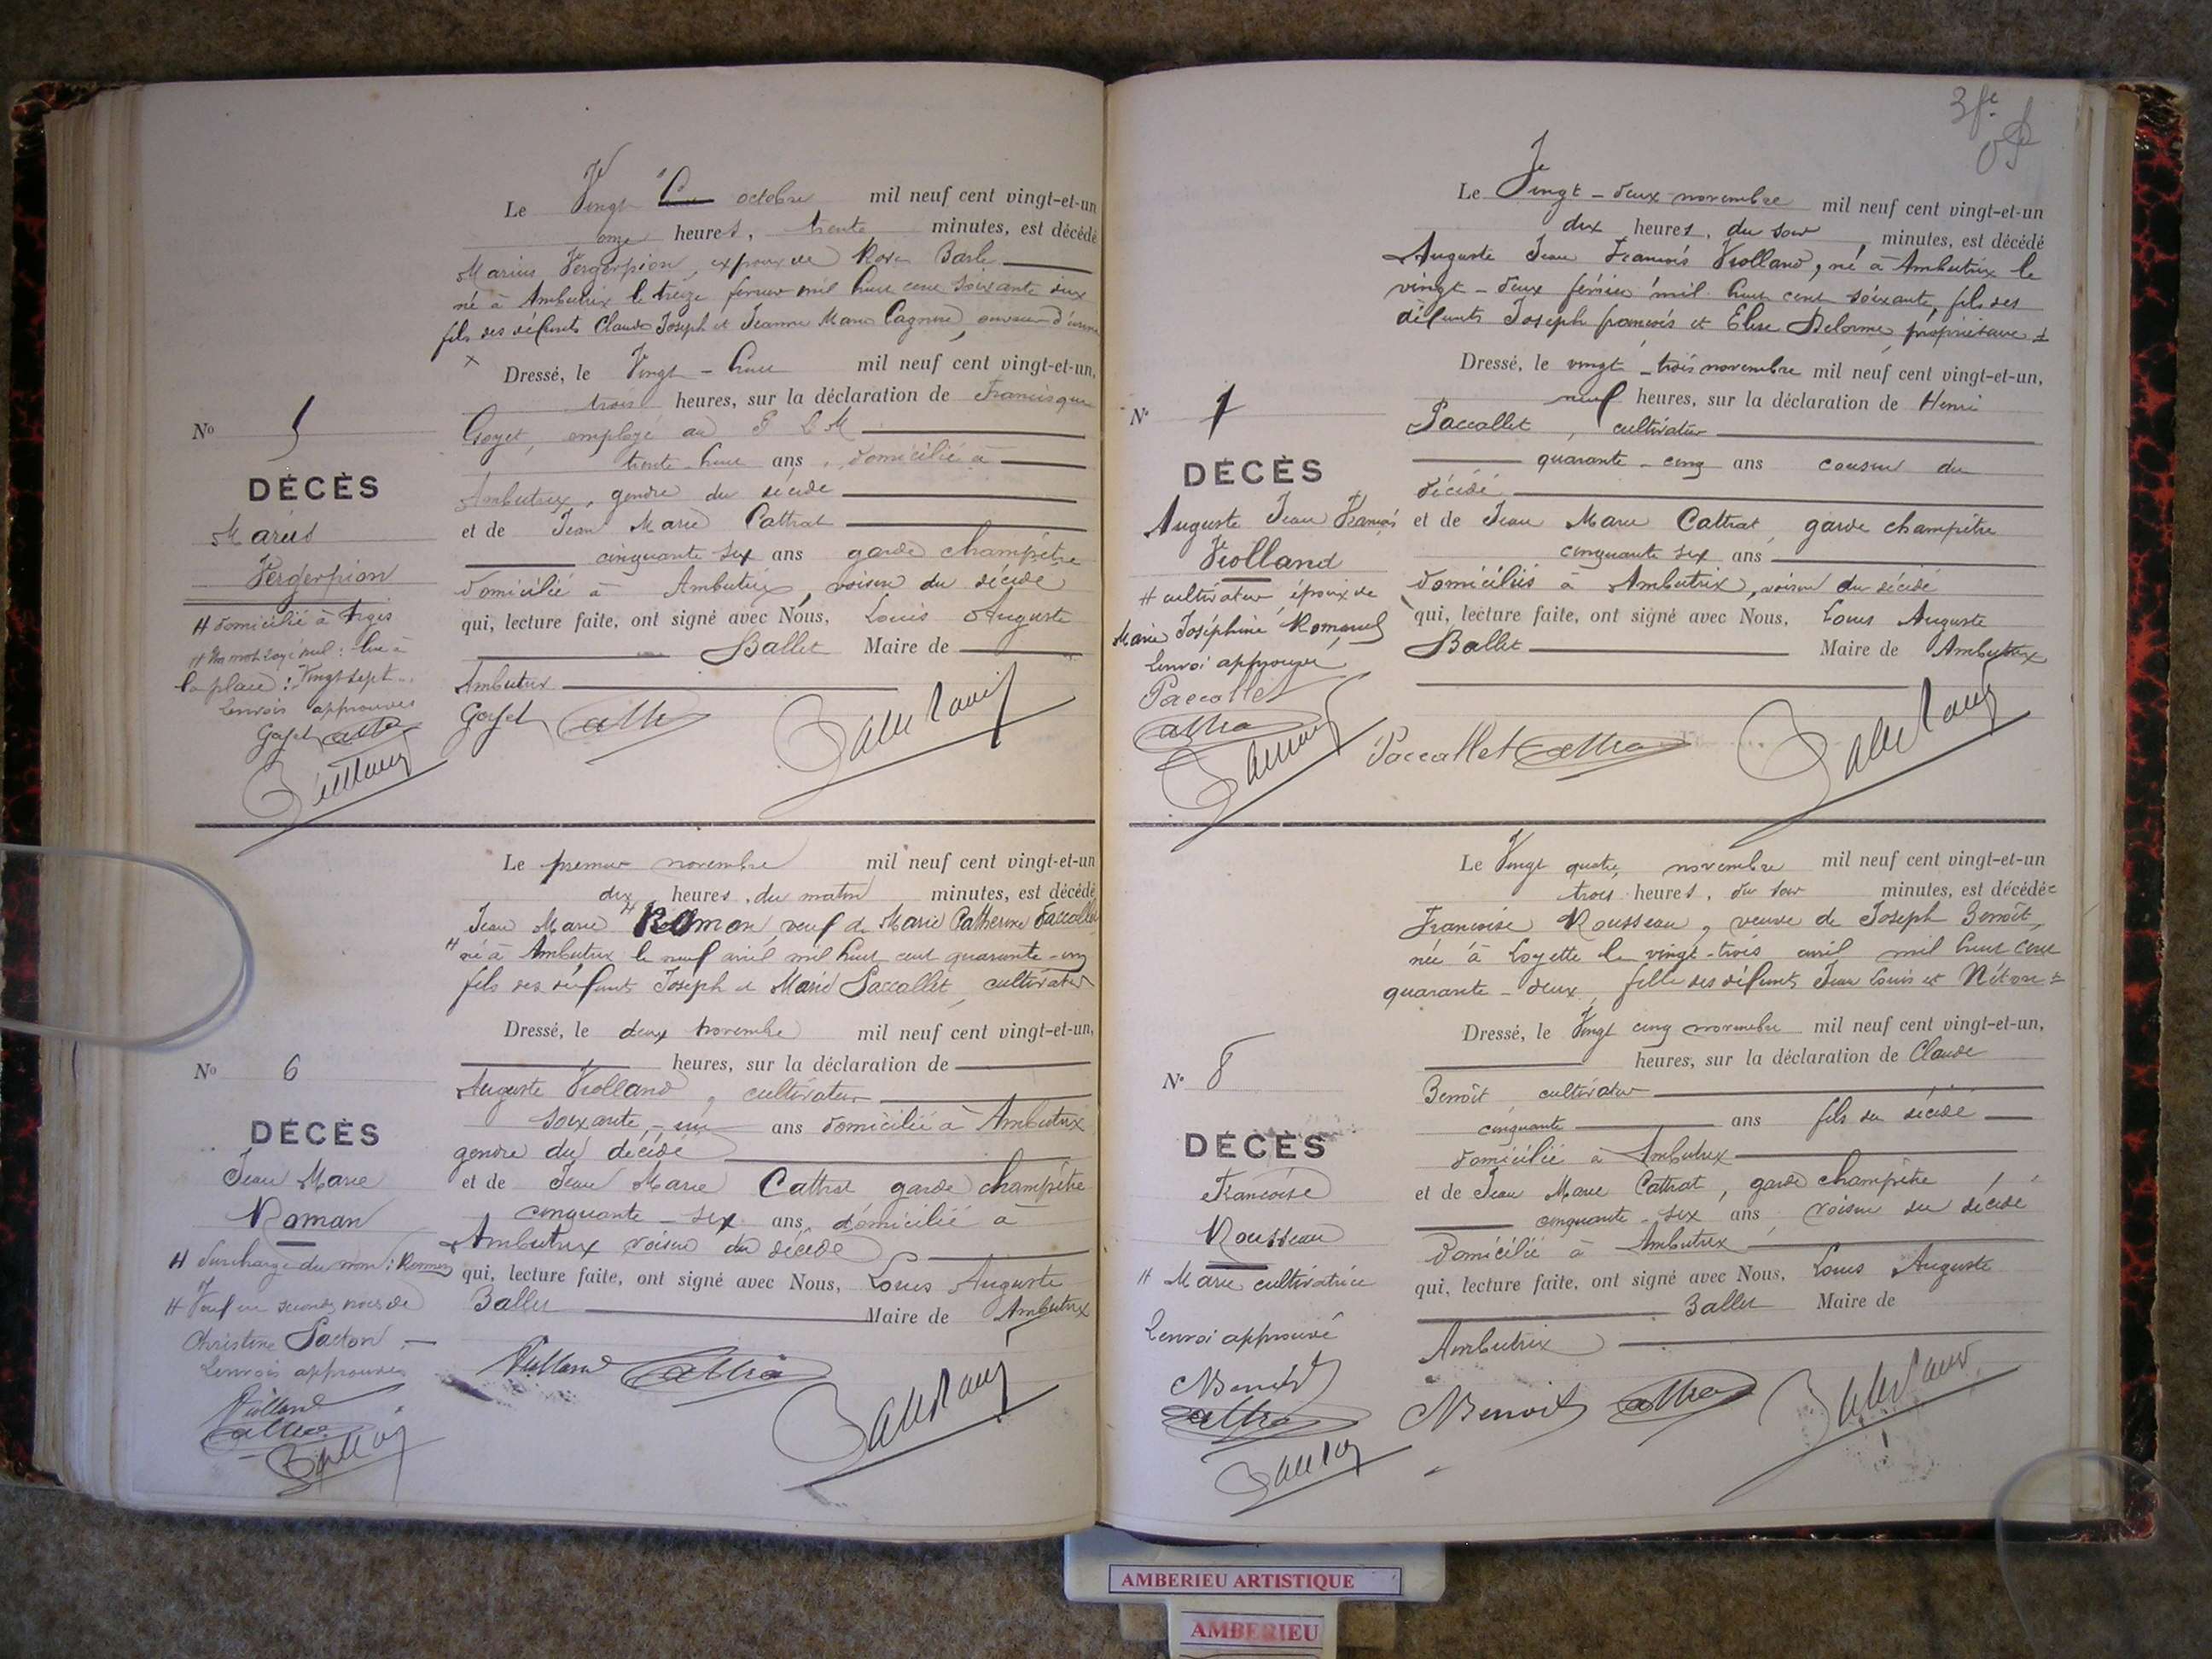 Le Vingt octobre mil neuf cent vingt-et-un
onze heures, trente minutes, est décédé
Marius Vergerpion, époux de Rose Barbe
né à Ambutrix le treize février mil huit cent soixante deux
fils des défunts Claude Joseph et Jeanne Marie Cagnin, ouvrier d'usine
Dressé, le Vingt-huit mil neuf cent vingt-et-un,
trois heures, sur la déclaration de Francisque
Goyet, employé au P L M
trente huit ans, domicilié à
Ambutrix, gendre du décédé
et de Jean Marie Cattrat
cinquante six ans garde champêtre
domicilié à Ambutrix, voisin du décédé
qui, lecture faite, ont signé avec Nous, Louis Auguste
Ballet Maire de
Ambutrix
Goyet
No 5
DÉCÈS
Marius
Vergerpion
H domicilié à Argis
H Un mot rayé nul: lire à
la place: Vingt sept
Renvois approuvés
Goyet
Le premier novembre mil neuf cent vingt-et-un
dix heures, du matin minutes, est décédé
Jean Marie H Roman, veuf de Marie Catherine Paccallet
H né à Ambutrix le neuf avril mil huit cent quarante-un
fils des défunts Joseph et Marie Paccallet, cultivateur
Dressé, le deux novembre mil neuf cent vingt-et-un,
heures, sur la déclaration de
Auguste Violland, cultivateur
soixante-un ans domicilié à Ambutrix
gendre du décédé
et de Jean Marie Cattrat garde champêtre
cinquante-six ans, domicilié à
Ambutrix voisin du décédé
qui, lecture faite, ont signé avec Nous, Louis Auguste
Ballet Maire de Ambutrix
Violland
No 6
DÉCÈS
Jean Marie
Roman
H Surcharge du nom: Roman
H Veuf en secondes noces de
Christine Pacton
Renvois approuvés
Violland
3 fe
Le Vingt-deux novembre mil neuf cent vingt-et-un
dix heures, du soir minutes, est décédé
Auguste Jean François Violland, né à Ambutrix le
vingt-deux février mil huit cent soixante, fils des
défunts Joseph françois et Elise Delorme, propriétaire
Dressé, le vingt-trois novembre mil neuf cent vingt-et-un,
neuf heures, sur la déclaration de Henri
Paccallet, cultivateur
quarante-cinq ans cousin du
décédé
et de Jean Marie Cattrat, garde champêtre
cinquante six ans
domiciliés à Ambutrix, voisin du décédé
qui, lecture faite, ont signé avec Nous, Louis Auguste
Ballet Maire de Ambutrix
Paccallet
No 7
DÉCÈS
Auguste Jean François
Violland
H cultivateur, époux de
Marie Joséphine Romand
Renvoi approuvé
Paccallet
Le Vingt quatre novembre mil neuf cent vingt-et-un
trois heures, du soir minutes, est décédée
Françoise Rousseau, veuve de Joseph Benoît,
née à Loyette le vingt-trois avril mil huit cent
quarante-deux, fille des défunts Jean Louis et
Dressé, le Vingt cinq novembre mil neuf cent vingt-et-un,
heures, sur la déclaration de Claude
Benoît cultivateur
cinquante ans fils du décédé
domicilié à Ambutrix
et de Jean Marie Cattrat, garde champêtre
cinquante-six ans, voisin du décédé
domicilié à Ambutrix
qui, lecture faite, ont signé avec Nous, Louis Auguste
Ballet Maire de
Ambutrix
Benoit
No 8
DÉCÈS
Françoise
Rousseau
H Marie cultivatrice
Renvoi approuvé
Benoit
AMBERIEU ARTISTIQUE
AMBERIEU